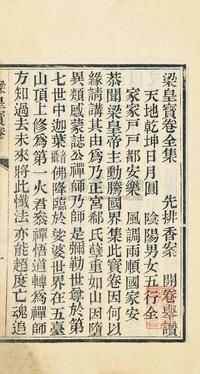 梁皇寶卷全集
先排香案　開卷舉讚
天地乾坤日月圓　陰陽男女五行全
家家戸戸都安樂　風調雨順國家安
恭聞梁皇帝主動勝國界集此寶卷因何以
緣請講其由爲乃正宮郗氏孽重如山因墮
異類感蒙誌公禪師乃是彌勒世尊於第
七世中迦葉諳佛降臨於娑婆世界在五臺
山頂上修爲第一火君叅禪悟道轉爲禪師
方知過去未來將此懺法亦能超度亡魂追
梁皇寶卷